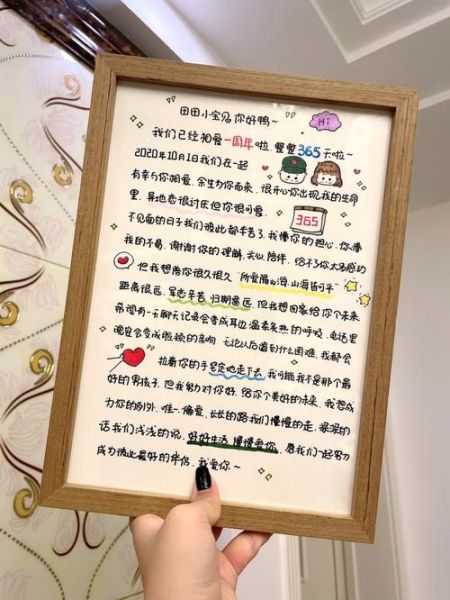 田田小宝贝 你好鸭~
Hi
我们已经相爱一周年啦 整整365天啦~
2020年10月1日我们在一起
有幸与你相爱,余生为你而来,很开心你出现我的生命
里,异地恋很讨厌但你很可爱.
365
不见面的日子我们彼此都辛苦了,我懂你的担心,你懂
我的不易,谢谢你的理解,关心,陪伴,给不了你太多感动
但我想陪你很久很久 "所爱隔山海,山海皆可平"
距离很远,军恋辛苦,归期遥远,但我想回客给你个未来
希望有一天聊天记录会变成耳边温柔炙热的呼吸,电话里
晚安会变成脸颊的亲吻 无论以后遇到什么困难,我都会
拉着你的手坚定地走下去,我可能我不是那个最
好的男孩子,但我努力对你好,给你个美好的未来,我想成
为你的例外,唯一,偏爱,长长的路我们慢慢的走,深深的
话我们浅浅的说,好好生活,慢慢爱你,愿我们一起努力
成为彼此最好的伴侣,我爱你~